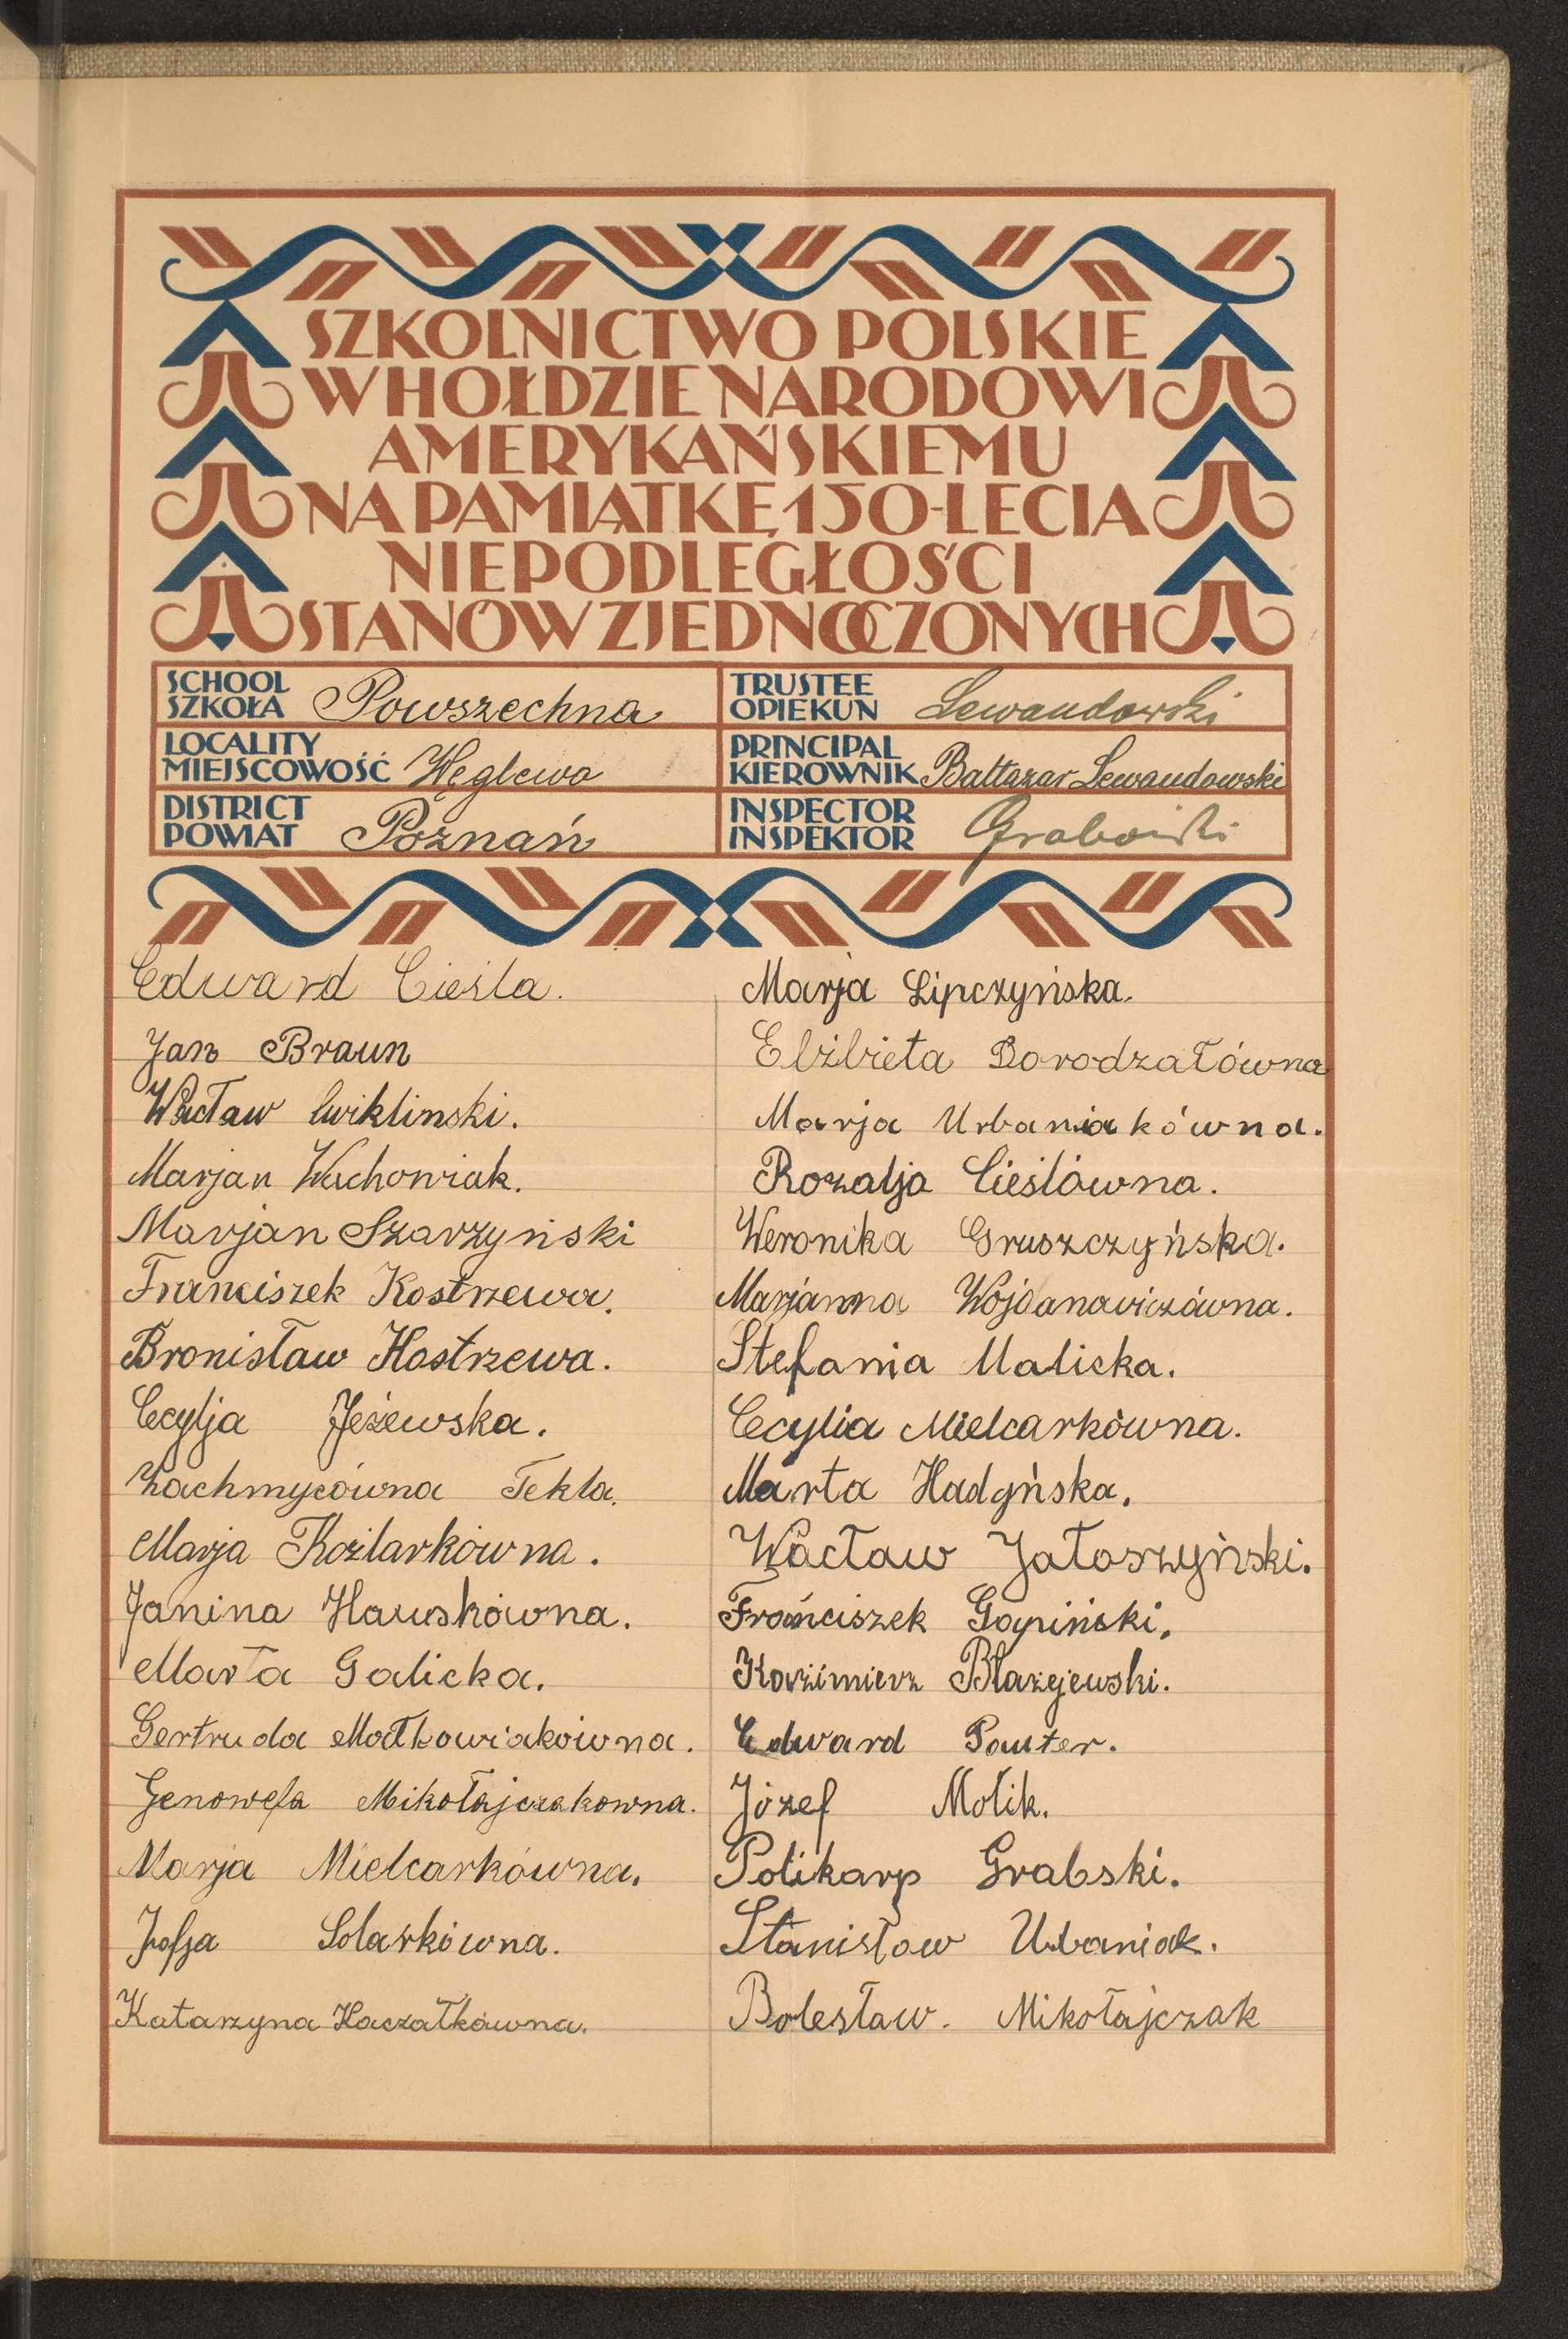 SZKOLNICTWO POLSKIE
W HOŁDZIE NARODOWI
AMERYKAŃSKIEMU
NA PAMIĄTKĘ 150-LECIA
NIEPODLEGŁOŚCI
STANÓW ZJEDNOCZONYCH
SCHOOL
SZKOŁA Powszechna
TRUSTEE
OPIEKUN Lewandowski
LOCALITY
MIEJSCOWOŚĆ Węglewo
PRINCIPAL
KIEROWNIK Baltazar Lewandowski
DISTRICT
POWIAT Poznań
INSPECTOR
INSPEKTOR Grabowski
Edward Cieśla.
Jan Braun
Wacław Cwiklinski.
Marjan Wachowiak.
Marjan Szarzyński
Franciszek Kostrzewa.
Bronisław Kostrzewa.
Cecylja Jeżewska.
Tekla.
Marja Koźlarkówna.
Janina Hauskówna.
Marta Galicka.
Gertruda Małkowiakówna.
Genowefa Mikołajczakowna.
Marja Mielcarkówna.
Zofja Solarkówna.
Katarzyna Kaczałkówna.
Marja Lipczyńska.
Elżbieta Dorodzałówna
Marja Urbaniakówna.
Rozalja Cieślówna.
Weronika Gruszczyńska.
Marjanna Wojdanowiczówna.
Stefania Malicka.
Cecylia Mielcarkówna.
Marta Hadyńska.
Wacław Jałoszyński.
Franciszek Gapiński.
Kazimierz Błażejewski.
Edward Pauter.
Józef Molik.
Polikarp Grabski.
Stanisław Urbaniak.
Bolesław. Mikołajczak